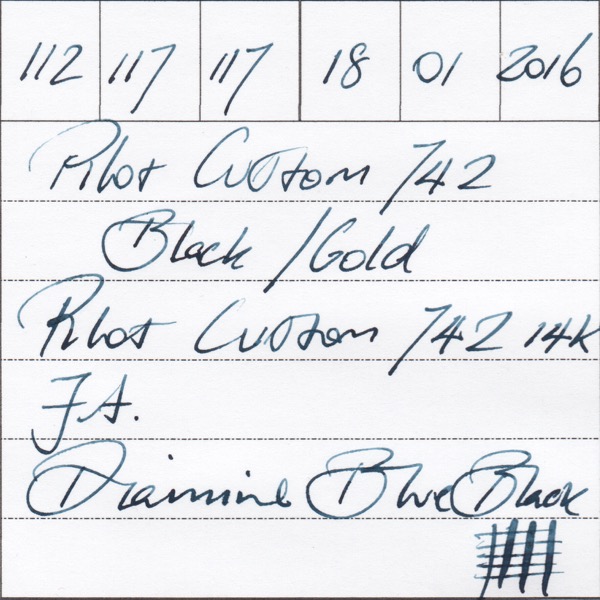 112 117 117 18 01 2016
Pilot Custom 742
Black/Gold
Pilot Custom 742 14K
F.A.
Diamine Blue Black